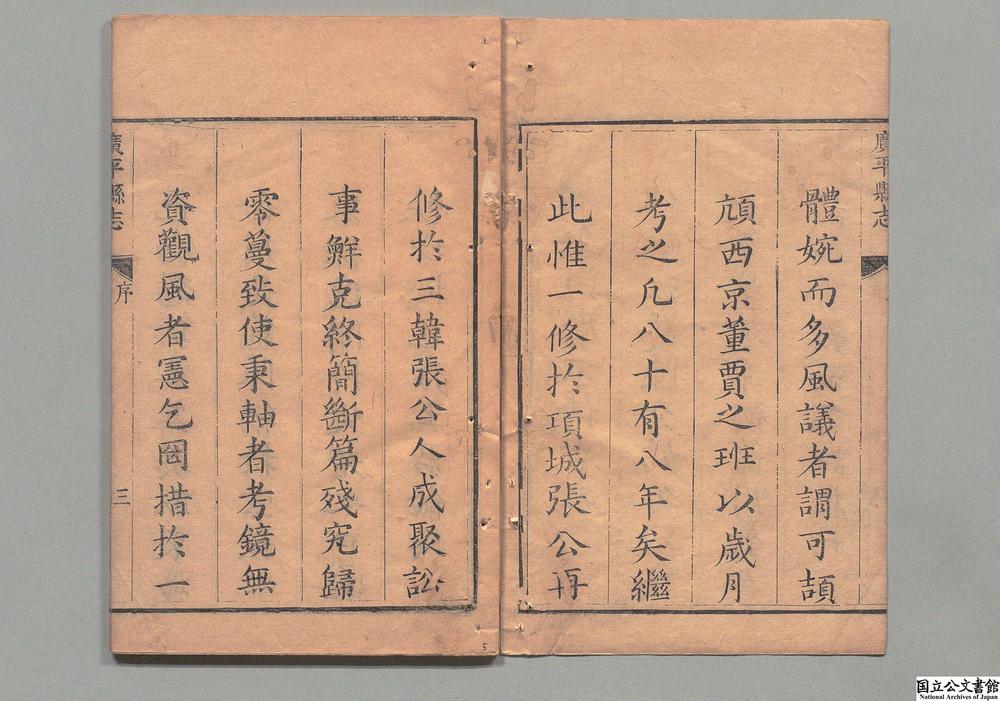 廣平縣志
體婉而多風議者謂可頡
頏西京董賈之班以歲月
考之凡八十有八年矣繼
此惟一修於項城張公再
修於三韓張公人成聚訟
事鮮克終簡斷篇殘究歸
零蔓致使秉軸者考鏡無
資觀風者憲乞罔措於一
廣平縣志
序
三
5
国立公文書館
National Archives of Japan